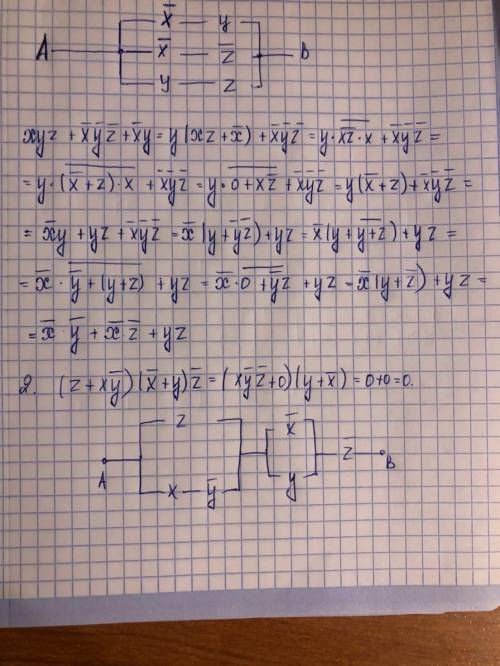 x̅ — y
A x̅ — z̅ B
y — z
xyz + x̅y̅z̅ + x̅y = y(xz + x̅) + x̅y̅z̅ = y·\overline{\overline{xz}·x} + x̅y̅z̅ =
= y·\overline{(x̅ + z̅)·x} + x̅y̅z̅ = y·\overline{0 + xz̅} + x̅y̅z̅ = y(x̅ + z) + x̅y̅z̅ =
= x̅y + yz + x̅y̅z̅ = x̅(y + y̅z̅) + yz = x̅(y + \overline{y + z}) + yz =
= x̅·\overline{y̅ + (y + z)} + yz = x̅·\overline{0 + y̅z} + yz = x̅(y + z̅) + yz =
= x̅·y̅ + x̅·z̅ + yz
2. (z + xy̅)(x̅ + y)z̅ = (xy̅z̅ + 0)(y + x̅) = 0 + 0 = 0.
z x̅
A z̅ B
x — y̅ y